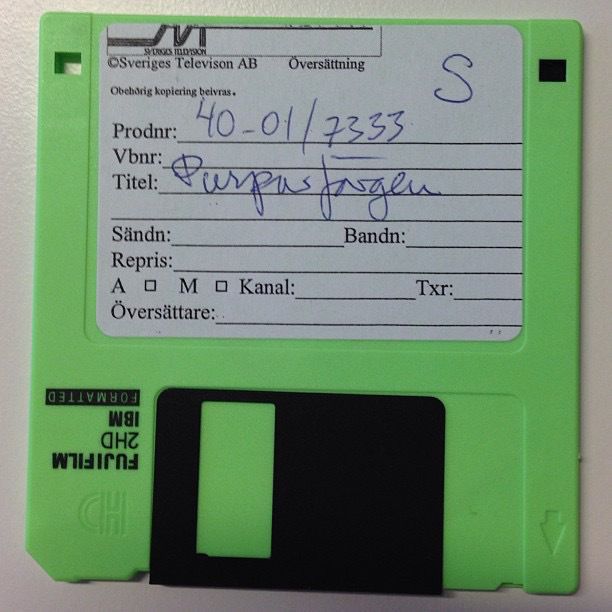 SVERIGES TELEVISION
©Sveriges Televison AB Översättning
S
Obehörig kopiering beivras.
Prodnr: 40-01/7333
Vbnr:
Titel: Purpurfärgen
Sändn: Bandn:
Repris:
A M Kanal: Txr:
Översättare:
FORMATTED
IBM
2HD
FUJIFILM
HD